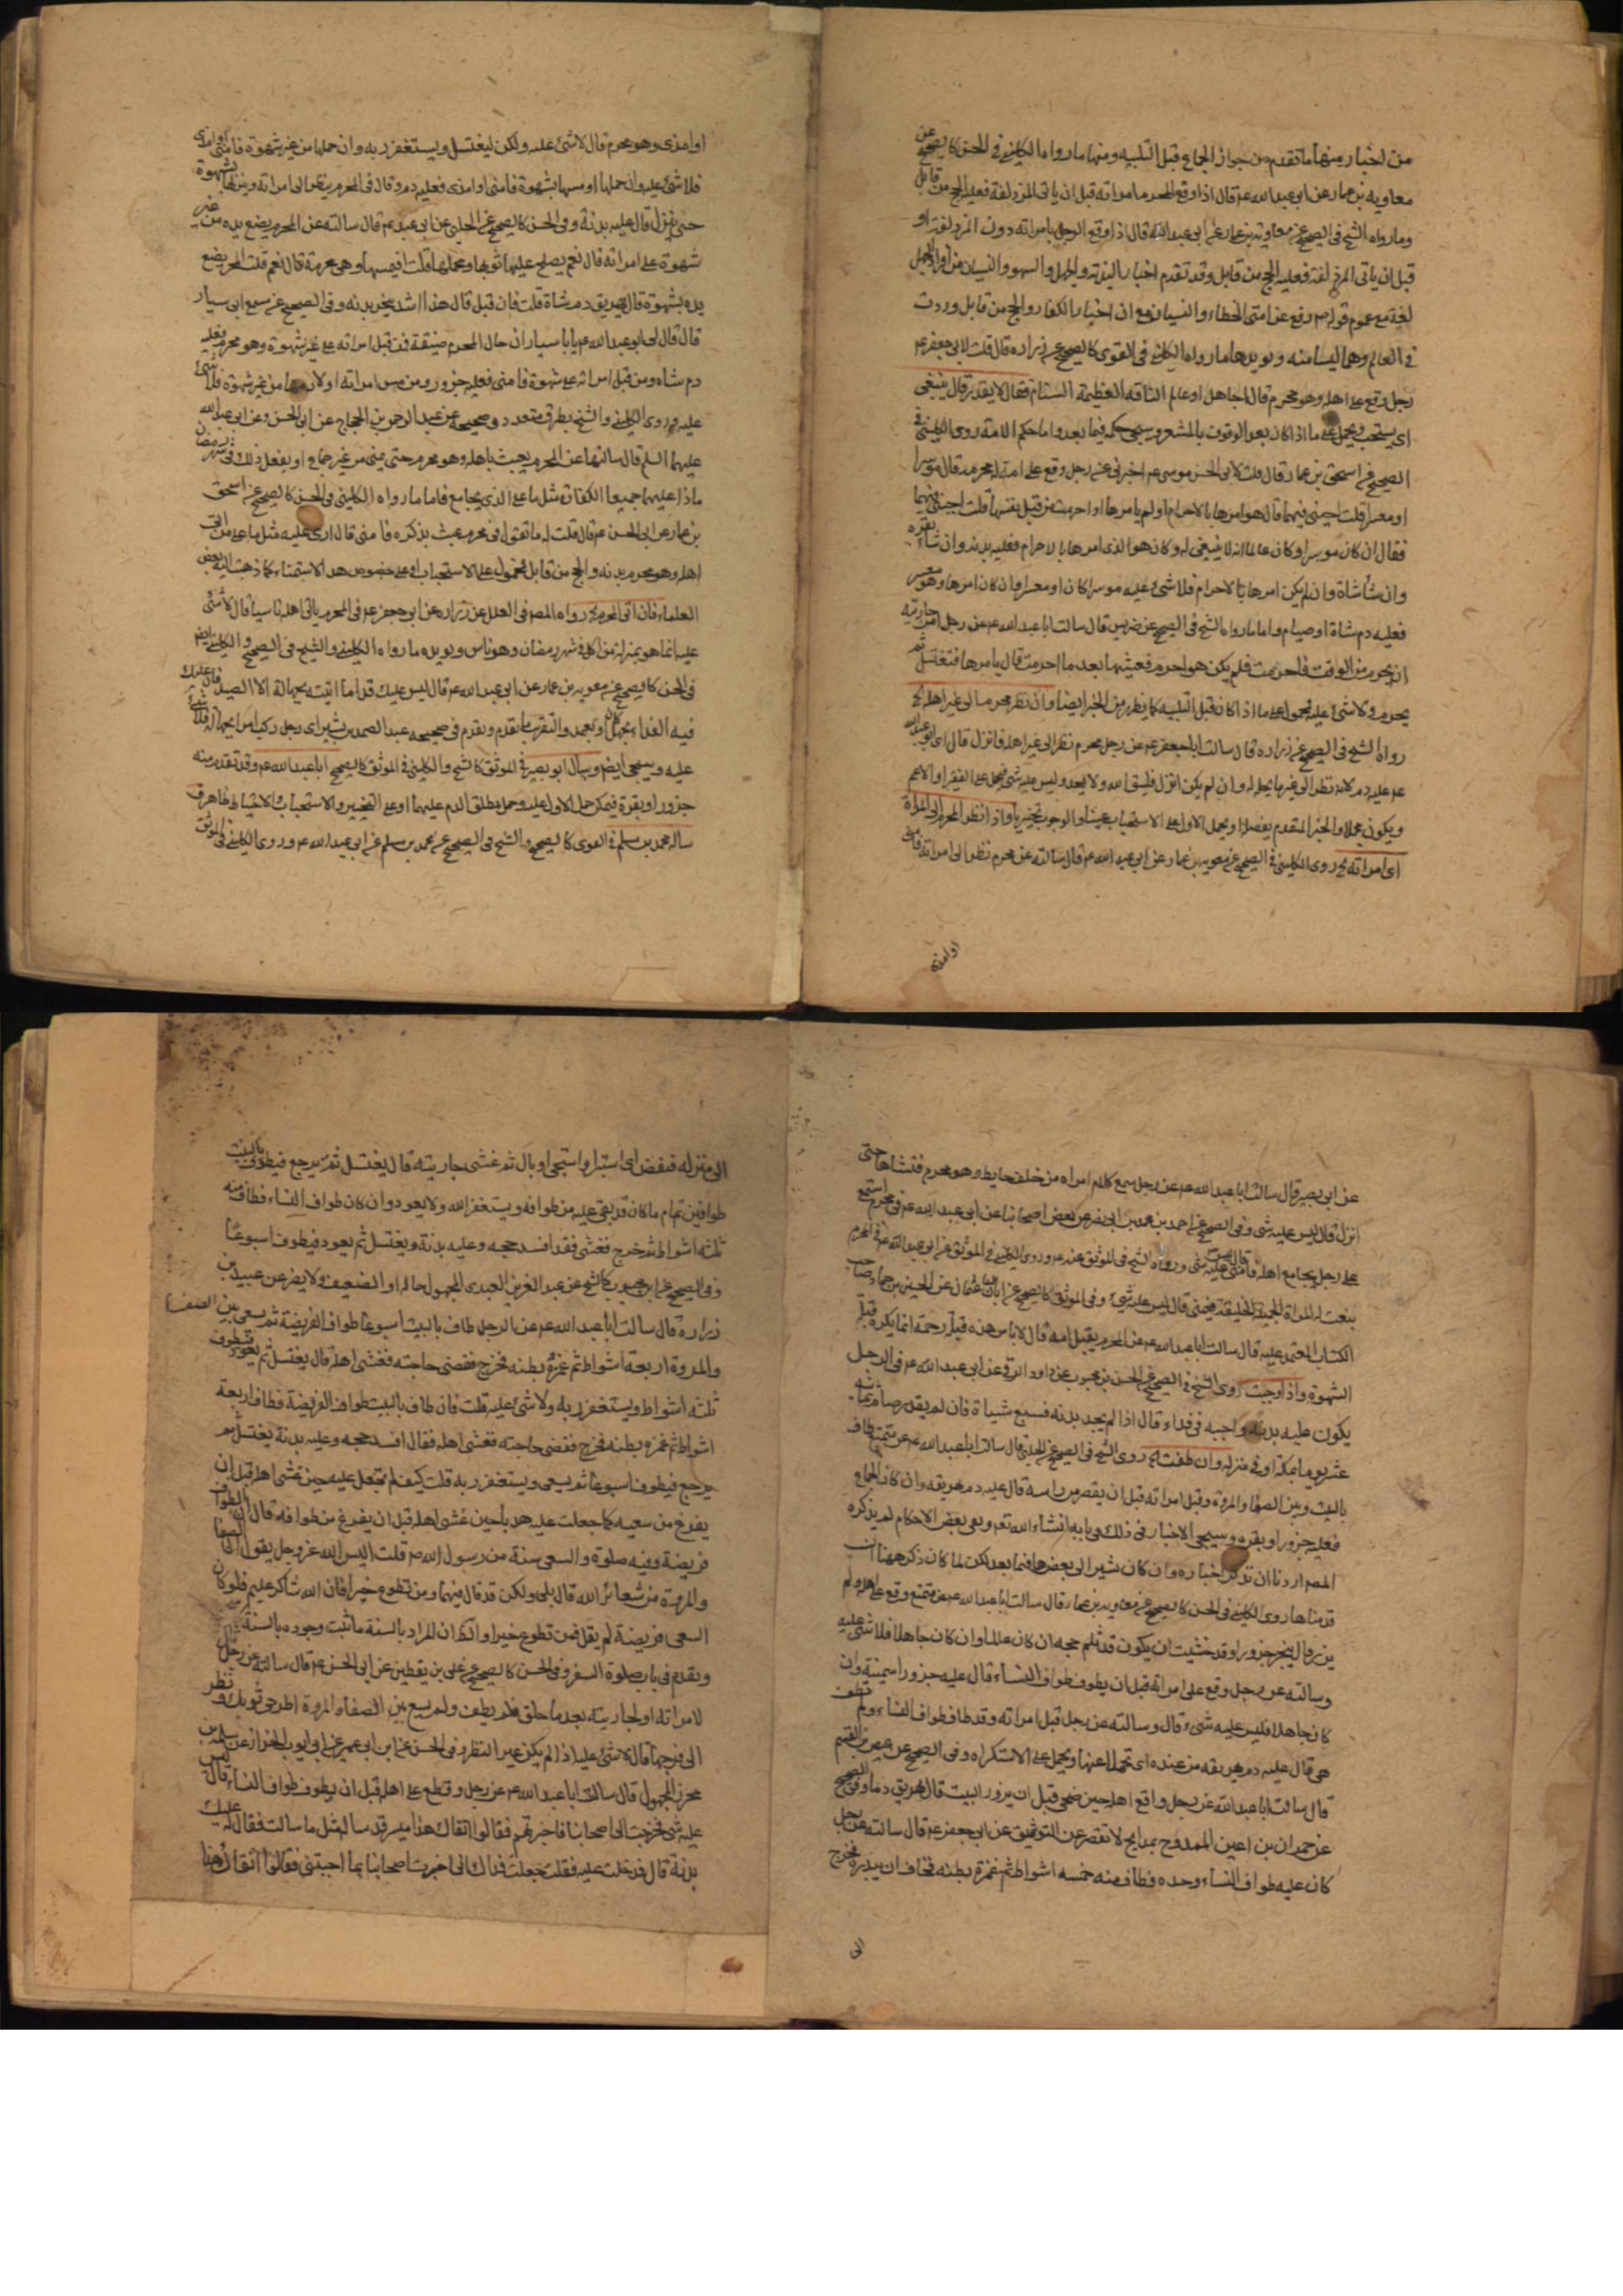 من اخبار منها ما تقدم من جواز الجماع قبل التلبيه ومنها ما رواه الكليني في الحسن كالصحيح عن
معاوية بن عمار عن ابي عبد الله ع قال اذا وقع المحرم امراته قبل ان ياتي المزدلفة فعليه الحج من قابل
وما رواه الشيخ في الصحيح عن معاوية بن عمار عن ابي عبد الله ع قال اذا وقع الرجل بامراته دون المزدلفة او
قبل ان ياتي المزدلفة فعليه الحج من قابل وقد تقدم اخبار النية والجهل والسهو والنسيان من
لغة مع عموم قوله ص رفع عن امتي الخطاء والنسيان مع ان اخبار الكفار والحج من قابل وردت
في العالم وهما ليسا منه ويويدهما ما رواه الكليني في القوى كالصحيح عن زراره قال قلت لابي جعفر ع
رجل وقع على اهله وهو محرم قال اجاهل او عالم قال ينبغي
اي يستحب ويحمل على ما اذا كان بعد الوقوف بالمشعر وسيجي حكمه فيما بعد واما حكم الامة روى الكليني في
الصحيح عن اسحق بن عمار قال قلت لابي الحسن موسى ع اخبرني عن رجل وقع على امة له محرمه قال موسرا
او معسرا قلت اجبني فيهما قال هو امرها بالاحرام او لم يامرها او احرمت من قبل نفسها قلت اجبني فيهما
فقال ان كان موسرا وكان عالما انه لا ينبغي له وكان هو الذي امرها بالاحرام فعليه بدنه وان شاء بقره
وان شاء شاة وان لم يكن امرها بالاحرام فلا شيء عليه موسرا كان او معسرا وان كان امرها وهو معسر
فعليه دم شاة او صيام واما ما رواه الشيخ في الصحيح عن ضريس قال سالت ابا عبد الله ع عن رجل امر جاريته
ان تحرم من الوقت فاحرمت فلم يكن هو احرم فغشيها بعد ما احرمت قال يامرها فتغتسل ثم
تحرم ولا شيء عليه فمحمول على ما اذا كان قبل التلبيه كما يظهر من الخبر ايضا وان نظر محرم الى غير اهله الخ
رواه الشيخ في الصحيح عن زراره قال سالت ابا جعفر ع عن رجل محرم نظر الى غير اهله فانزل قال اي ابو عبد الله
ع عليه دم لانه نظر الى غير ما يحل له وان لم يكن انزل فليتق الله ولا يعد وليس عليه شيء فيحمل على الفقير او الاعم
ويكون مجملا والخبر المتقدم مفصلا او يحمل الاول على الاستحباب واذا نظر المحرم الى المراة
اي امراته الخ روى الكليني في الصحيح عن معوية بن عمار عن ابي عبد الله ع قال سالته عن محرم نظر الى امراته فامنى
او امذى
او امذى وهو محرم قال لا شيء عليه ولكن ليغتسل ويستغفر ربه وان حملها من غير شهوة فامنى او امذى
فلا شيء عليه وان حملها او مسها بشهوة فامنى او امذى فعليه دم وقال في المحرم ينظر الى امراته وينزلها بشهوة
حتى ينزل قال عليه بدنة وفي الحسن كالصحيح عن الحلبي عن ابي عبد الله ع قال سالته عن المحرم يضع يده من غير
شهوة على امراته قال نعم يصلح عليها ثوبها ومحملها قلت افيمسها وهي محرمة قال نعم قلت المحرم يضع
يده بشهوة قال يهريق دم شاة قلت فان قبل قال هذا اشد ينحر بدنه وفي الصحيح عن مسمع ابي سيار
قال قال لي ابو عبد الله ع يا با سيار ان حال المحرم ضيقة فمن قبل امراته على غير شهوة وهو محرم فعليه
دم شاه ومن قبل امراته على شهوة فامنى فعليه جزور ومن مس امراته او لازمها من غير شهوة فلا شيء
عليه وروى الكليني والشيخ بطرق متعدده صحيحه عن عبد الرحمن بن الحجاج عن ابي الحسن وعن ابي عبد الله
عليهما السلم قال سالتهما عن المحرم يعبث باهله وهو محرم حتى يمنى من غير جماع او يفعل ذلك في شهر رمضان
ماذا عليهما جميعا الكفارة مثل ما على الذي يجامع فاما ما رواه الكليني في الحسن كالصحيح عن اسحق
بن عمار عن ابي الحسن ع قال قلت له ما تقول في محرم عبث بذكره فامنى قال ارى عليه مثل ما على من اتى
اهله وهو محرم بدنه والحج من قابل فمحمول على الاستحباب او على خصوص هذا الاستمناء كما ذهب اليه بعض
العلماء فان اتى المحرم الخ رواه المصر في العلل عن زراره عن ابي جعفر ع في المحرم ياتي اهله ناسيا قال لا شيء
عليه انما هو بمنزلة من اكل في شهر رمضان وهو ناس ويويده ما رواه الكليني والشيخ في الصحيح والكليني ايضا
في الحسن كالصحيح عن معويه بن عمار عن ابي عبد الله ع قال ليس عليك فداء ما اتيته بجهالة الا الصيد فان عليك
فيه الفداء بجهل او بعمد والتقريب ما تقدم وتقدم في صحيحه عبد الصمد بن بشير اي رجل ركب امرا بجهالة فلا شيء
عليه وسيجي ايضا وسال ابو بصير في الموثق كالشيخ والكليني في الموثق كالصحيح ابا عبد الله ع وقد تقدم منه
جزور او بقرة فيمكن حمل الاول عليه وحمل مطلق الدم عليهما او على التخيير والاستحباب والاحتياط ظاهر وفي
ساله محمد بن مسلم في القوى كالصحيح والشيخ في الصحيح عن محمد بن مسلم عن ابي عبد الله ع وروى الكليني في الموثق
عن ابي بصير قال سالت ابا عبد الله ع عن رجل سمع كلام امراه من خلف حايط وهو محرم فتشاها حتى
انزل قال ليس عليه شي وفي الصحيح عن احمد بن محمد بن ابي نصر عن بعض اصحابنا عن ابي عبد الله ع في محرم استمع
على رجل يجامع اهله فامنى قال ليس عليه شي ورواه الشيخ في الموثق عنه ع وروى الكليني في الموثق عن ابي عبد الله ع في المحرم
ينعت له المراة الجميلة الخليقة فيمنى قال ليس عليه شيء وفي الموثق كالصحيح عن ابان بن عثمان عن الحسين بن حماد صاحب
الكتاب المعتمد عليه قال سالت ابا عبد الله ع عن المحرم يقبل امه قال لا باس هذه قبلة رحمة انما يكره قبلة
الشهوة واذا وجبت روى الشيخ في الصحيح عن الحسن بن محبوب عن داود الرقي عن ابي عبد الله ع في الرجل
يكون عليه بدنه واجبه في فداء قال اذا لم يجد بدنه فسبع شياة فان لم يقدر صام ثمانيه
عشر يوما بمكة او في منزله وان طفت الخ روى الشيخ في الصحيح عن الحلبي قال سالت ابا عبد الله ع عن متمتع طاف
بالبيت وبين الصفا والمروة وقبل امراته قبل ان يقصر من راسه قال عليه دم يهريقه وان كان الجماع
فعليه جزور او بقره وسيجي الاخبار في ذلك في بابه انشاء الله تعم وبقي بعض الاحكام لم يذكره
المصر اردنا ان نذكر اخباره وان كان نشير الى بعضها فيما بعد لكن لما كان ذكر ههنا انسب
قدمناها روى الكليني في الحسن كالصحيح عن معاوية بن عمار قال سالت ابا عبد الله ع عن متمتع وقع على اهله ولم
يزر قال ينحر جزورا وقد خشيت ان يكون قد ثلم حجه ان كان عالما وان كان جاهلا فلا شيء عليه
وسالته عن رجل وقع على امراته قبل ان يطوف طواف النساء قال عليه جزور سمينة وان
كان جاهلا فليس عليه شيء قال وسالته عن رجل قبل امراته وقد طاف طواف النساء ولم تطف
هي قال عليه دم يهريقه من عنده اي تحملا عنها ويحمل على الاستكراه وفي الصحيح عن عيص بن القسم
قال سالت ابا عبد الله عن رجل واقع اهله حين ضحى قبل ان يزور البيت قال يهريق دما وفي الصحيح
عن حمران بن اعين الممدوح بمدايح لا تقصر عن التوثيق عن ابي جعفر ع قال سالته عن رجل
كان عليه طواف النساء وحده فطاف منه خمسه اشواط ثم غمزه بطنه فخاف ان يبدره فخرج
الى
الى منزله فنقض اي استبرا واستنجى او بال ثم غشى جاريته قال يغتسل ثم يرجع فيطوف بالبيت
طوافين تمام ما كان قد بقي عليه من طوافه ويستغفر الله ولا يعود وان كان طواف النساء فطاف منه
ثلثه اشواط ثم خرج فغشى فقد افسد حجه وعليه بدنة ويغتسل ثم يعود فيطوف اسبوعا
وفي الصحيح عن ابن محبوب كالشيخ عن عبد العزيز العبدي المجهول حاله او الضعيف ولا يضر عن عبيد بن
زراره قال سالت ابا عبد الله ع عن الرجل طاف بالبيت اسبوعا طواف الفريضة ثم سعى بين الصفا
والمروة اربعة اشواط ثم غمزه بطنه فخرج فقضى حاجته فغشى اهله قال يغتسل ثم يعود فيطوف
ثلثه اشواط ويستغفر ربه ولا شيء عليه قلت فان طاف بالبيت طواف الفريضة فطاف اربعة
اشواط ثم غمزه بطنه فخرج فقضى حاجته فغشى اهله فقال افسد حجه وعليه بدنة يغتسل ثم
يرجع فيطوف اسبوعا ثم يسعى ويستغفر ربه قلت كيف لم تجعل عليه حين غشى اهله قبل ان
يفرغ من سعيه كما جعلت عليه هديا حين غشى اهله قبل ان يفرغ من طوافه قال ان الطواف
فريضة وفيه صلوة والسعي سنة من رسول الله ص قلت اليس الله عز وجل يقول ان الصفا
والمروة من شعائر الله قال بلى ولكن قد قال فيهما ومن تطوع خيرا فان الله شاكر عليم فلو كان
السعي فريضة لم يقل فمن تطوع خيرا والظ ان المراد بالسنة ما ثبت وجوبه بالسنة
وتقدم في باب صلوة السفر وفي الحسن كالصحيح عن علي بن يقطين عن ابي الحسن ع قال سالته عن رجل قال
لامراته او لجاريته بعد ما حلق فلم يطف ولم يسع بين الصفا والمروة اطرحي ثوبك ونظر
الى فرجها قال لا شيء عليه اذا لم يكن غير النظر وفي الحسن عن ابن ابي عمير عن ابي ايوب الخزاز عن سلمة بن
محرز المجهول قال سالت ابا عبد الله ع عن رجل وقع على اهله قبل ان يطوف طواف النساء قال ليس
عليه شي فخرجت الى اصحابنا فاخبرتهم فقالوا اتقاك هذا ميسر قد ساله مثل ما سالت فقال له عليك
بدنة قال فدخلت عليه فقلت جعلت فداك اني اخبرت اصحابنا بما اجبتني فقالوا اتقاك هذا